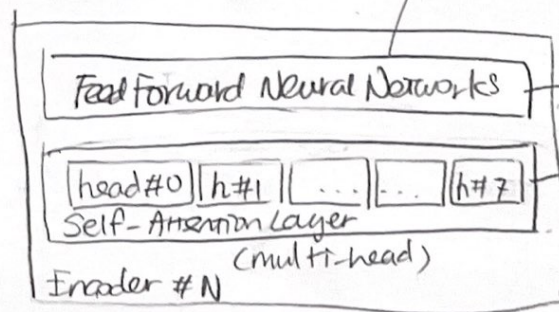 Feed Forward Neural Networks
head#0 h#1 ... ... h#7
Self-Attention Layer
(multi-head)
Encoder #N